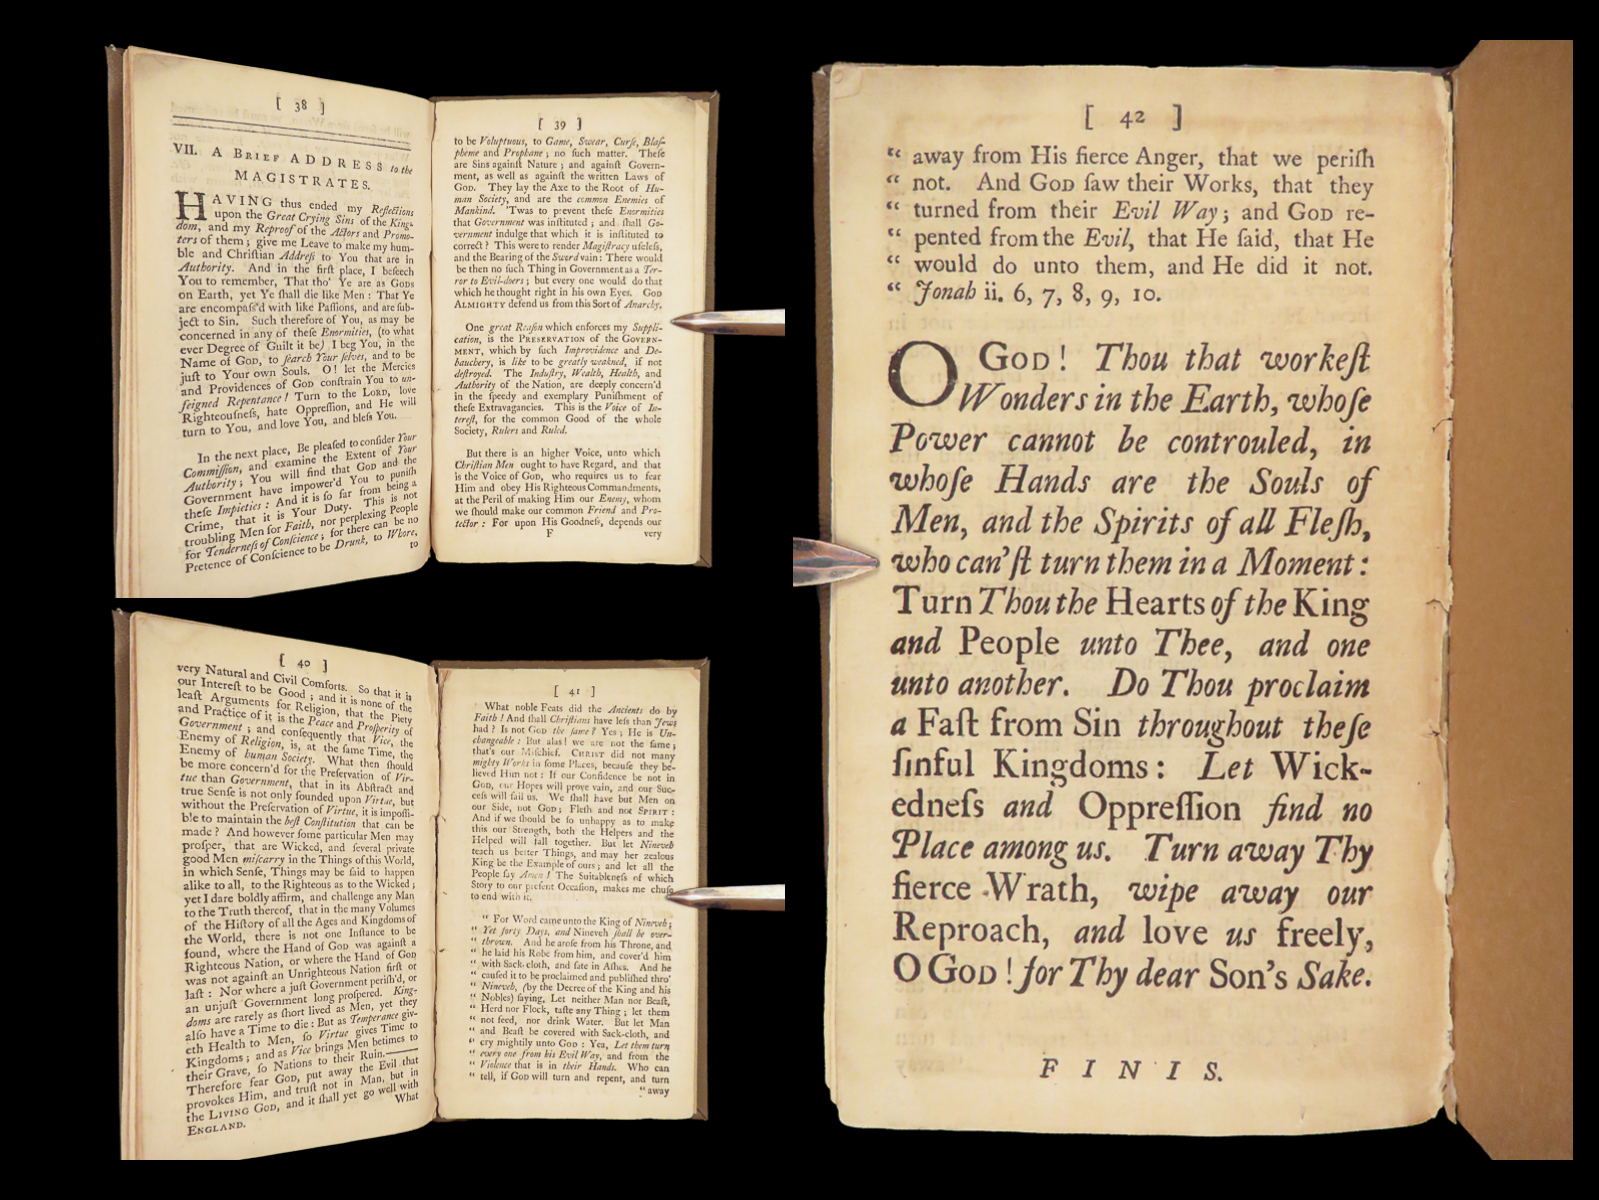 [ 38 ]
VII. A BRIEF ADDRESS to the
MAGISTRATES.
HAVING thus ended my Reflections
upon the Great Crying Sins of the King-
dom, and my Reproof of the Actors and Promo-
ters of them; give me Leave to make my hum-
ble and Christian Address to You that are in
Authority. And in the first place, I beseech
You to remember, That tho' Ye are as GODS
on Earth, yet Ye shall die like Men: That Ye
are encompass'd with like Passions, and are sub-
ject to Sin. Such therefore of You, as may be
concerned in any of these Enormities, (to what
ever Degree of Guilt it be) I beg You, in the
Name of GOD, to search Your selves, and to be
just to Your own Souls. O! let the Mercies
and Providences of GOD constrain You to un-
feigned Repentance! Turn to the LORD, love
Righteousness, hate Oppression, and He will
turn to You, and love You, and bless You.
In the next place, Be pleased to consider Your
Commission, and examine the Extent of Your
Authority; You will find that GOD and the
Government have impower'd You to punish
these Impieties: And it is so far from being a
Crime, that it is Your Duty. This is not
troubling Men for Faith, nor perplexing People
for Tenderness of Conscience; for there can be no
Pretence of Conscience to be Drunk, to Whore,
to
[ 39 ]
to be Voluptuous, to Game, Swear, Curse, Blas-
pheme and Prophane; no such matter. These
are Sins against Nature; and against Govern-
ment, as well as against the written Laws of
GOD. They lay the Axe to the Root of Hu-
man Society, and are the common Enemies of
Mankind. 'Twas to prevent these Enormities
that Government was instituted; and shall Go-
vernment indulge that which it is instituted to
correct? This were to render Magistracy useless,
and the Bearing of the Sword vain: There would
be then no such Thing in Government as a Ter-
ror to Evil-doers; but every one would do that
which he thought right in his own Eyes. GOD
ALMIGHTY defend us from this Sort of Anarchy.
One great Reason which enforces my Suppli-
cation, is the PRESERVATION of the GOVERN-
MENT, which by such Improvidence and De-
bauchery, is like to be greatly weakned, if not
destroyed. The Industry, Wealth, Health, and
Authority of the Nation, are deeply concern'd
in the speedy and exemplary Punishment of
these Extravagancies. This is the Voice of In-
terest, for the common Good of the whole
Society, Rulers and Ruled.
But there is an higher Voice, unto which
Christian Men ought to have Regard, and that
is the Voice of GOD, who requires us to fear
Him and obey His Righteous Commandments,
at the Peril of making Him our Enemy, whom
we should make our common Friend and Pro-
tector: For upon His Goodness, depends our
F very
[ 40 ]
very Natural and Civil Comforts. So that it is
our Interest to be Good; and it is none of the
least Arguments for Religion, that the Piety
and Practice of it is the Peace and Prosperity of
Government; and consequently that Vice, the
Enemy of Religion, is, at the same Time, the
Enemy of human Society. What then should
be more concern'd for the Preservation of Vir-
tue than Government, that in its Abstract and
true Sense is not only founded upon Virtue, but
without the Preservation of Virtue, it is impossi-
ble to maintain the best Constitution that can be
made? And however some particular Men may
prosper, that are Wicked, and several private
good Men miscarry in the Things of this World,
in which Sense, Things may be said to happen
alike to all, to the Righteous as to the Wicked;
yet I dare boldly affirm, and challenge any Man
to the Truth thereof, that in the many Volumes
of the History of all the Ages and Kingdoms of
the World, there is not one Instance to be
found, where the Hand of GOD was against a
Righteous Nation, or where the Hand of GOD
was not against an Unrighteous Nation first or
last: Nor where a just Government perish'd, or
an unjust Government long prospered. King-
doms are rarely as short lived as Men, yet they
also have a Time to die: But as Temperance giv-
eth Health to Men, so Virtue gives Time to
Kingdoms; and as Vice brings Men betimes to
their Grave, so Nations to their Ruin.——
Therefore fear GOD, put away the Evil that
provokes Him, and trust not in Man, but in
the LIVING GOD, and it shall yet go well with
ENGLAND.
What
[ 41 ]
What noble Feats did the Ancients do by
Faith! And shall Christians have less than Jews
had? Is not GOD the same? Yes; He is Un-
changeable: But alas! we are not the same;
that's our Mischief. CHRIST did not many
mighty Works in some Places, because they be-
lieved Him not: If our Confidence be not in
GOD, our Hopes will prove vain, and our Suc-
cess will fail us. We shall have but Men on
our Side, not GOD; Flesh and not SPIRIT:
And if we should be so unhappy as to make
this our Strength, both the Helpers and the
Helped will fall together. But let Nineveh
teach us better Things, and may her zealous
King be the Example of ours; and let all the
People say Amen! The Suitableness of which
Story to our present Occasion, makes me chuse
to end with it.
“ For Word came unto the King of Nineveh;
“ Yet forty Days, and Nineveh shall be over-
“ thrown. And he arose from his Throne, and
“ he laid his Robe from him, and cover'd him
“ with Sack-cloth, and sate in Ashes. And he
“ caused it to be proclaimed and published thro'
“ Nineveh, (by the Decree of the King and his
“ Nobles) saying, Let neither Man nor Beast,
“ Herd nor Flock, taste any Thing; let them
“ not feed, nor drink Water. But let Man
“ and Beast be covered with Sack-cloth, and
“ cry mightily unto GOD: Yea, Let them turn
“ every one from his Evil Way, and from the
“ Violence that is in their Hands. Who can
“ tell, if GOD will turn and repent, and turn
“ away
[ 42 ]
“ away from His fierce Anger, that we perish
“ not. And GOD saw their Works, that they
“ turned from their Evil Way; and GOD re-
“ pented from the Evil, that He said, that He
“ would do unto them, and He did it not.
“ Jonah ii. 6, 7, 8, 9, 10.
O GOD! Thou that workest
Wonders in the Earth, whose
Power cannot be controuled, in
whose Hands are the Souls of
Men, and the Spirits of all Flesh,
who can'st turn them in a Moment:
Turn Thou the Hearts of the King
and People unto Thee, and one
unto another. Do Thou proclaim
a Fast from Sin throughout these
sinful Kingdoms: Let Wick-
edness and Oppression find no
Place among us. Turn away Thy
fierce Wrath, wipe away our
Reproach, and love us freely,
O GOD! for Thy dear Son's Sake.
FINIS.